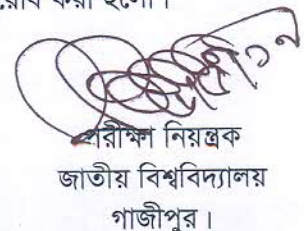 করা হলো।
পরীক্ষা নিয়ন্ত্রক
জাতীয় বিশ্ববিদ্যালয়
গাজীপুর।